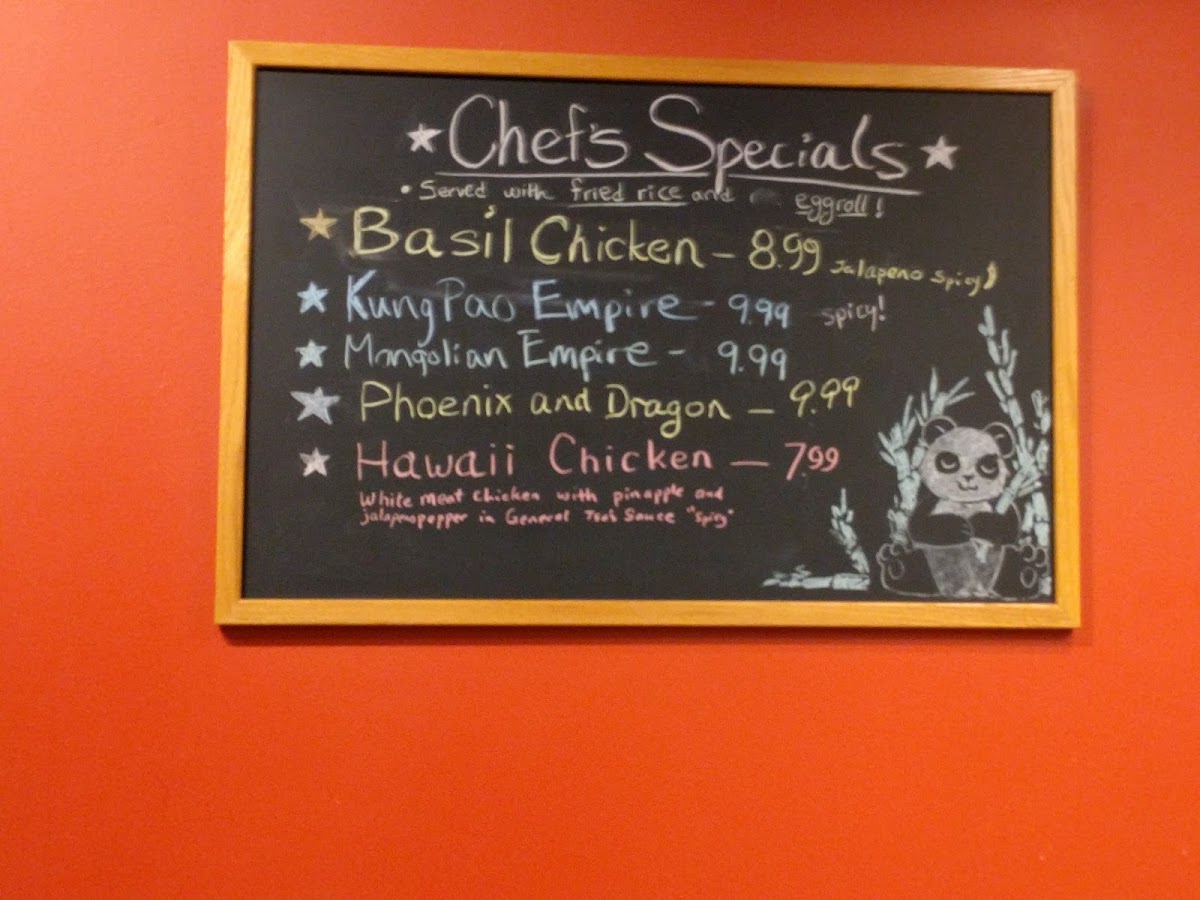 Chef's Specials
• Served with fried rice and eggroll!
Basil Chicken - 8.99 Jalapeno spicy
Kung Pao Empire - 9.99 spicy!
Mongolian Empire - 9.99
Phoenix and Dragon - 9.99
Hawaii Chicken - 7.99
White meat chicken with pinapple and
jalapenopepper in General Tso's Sauce "Spicy"